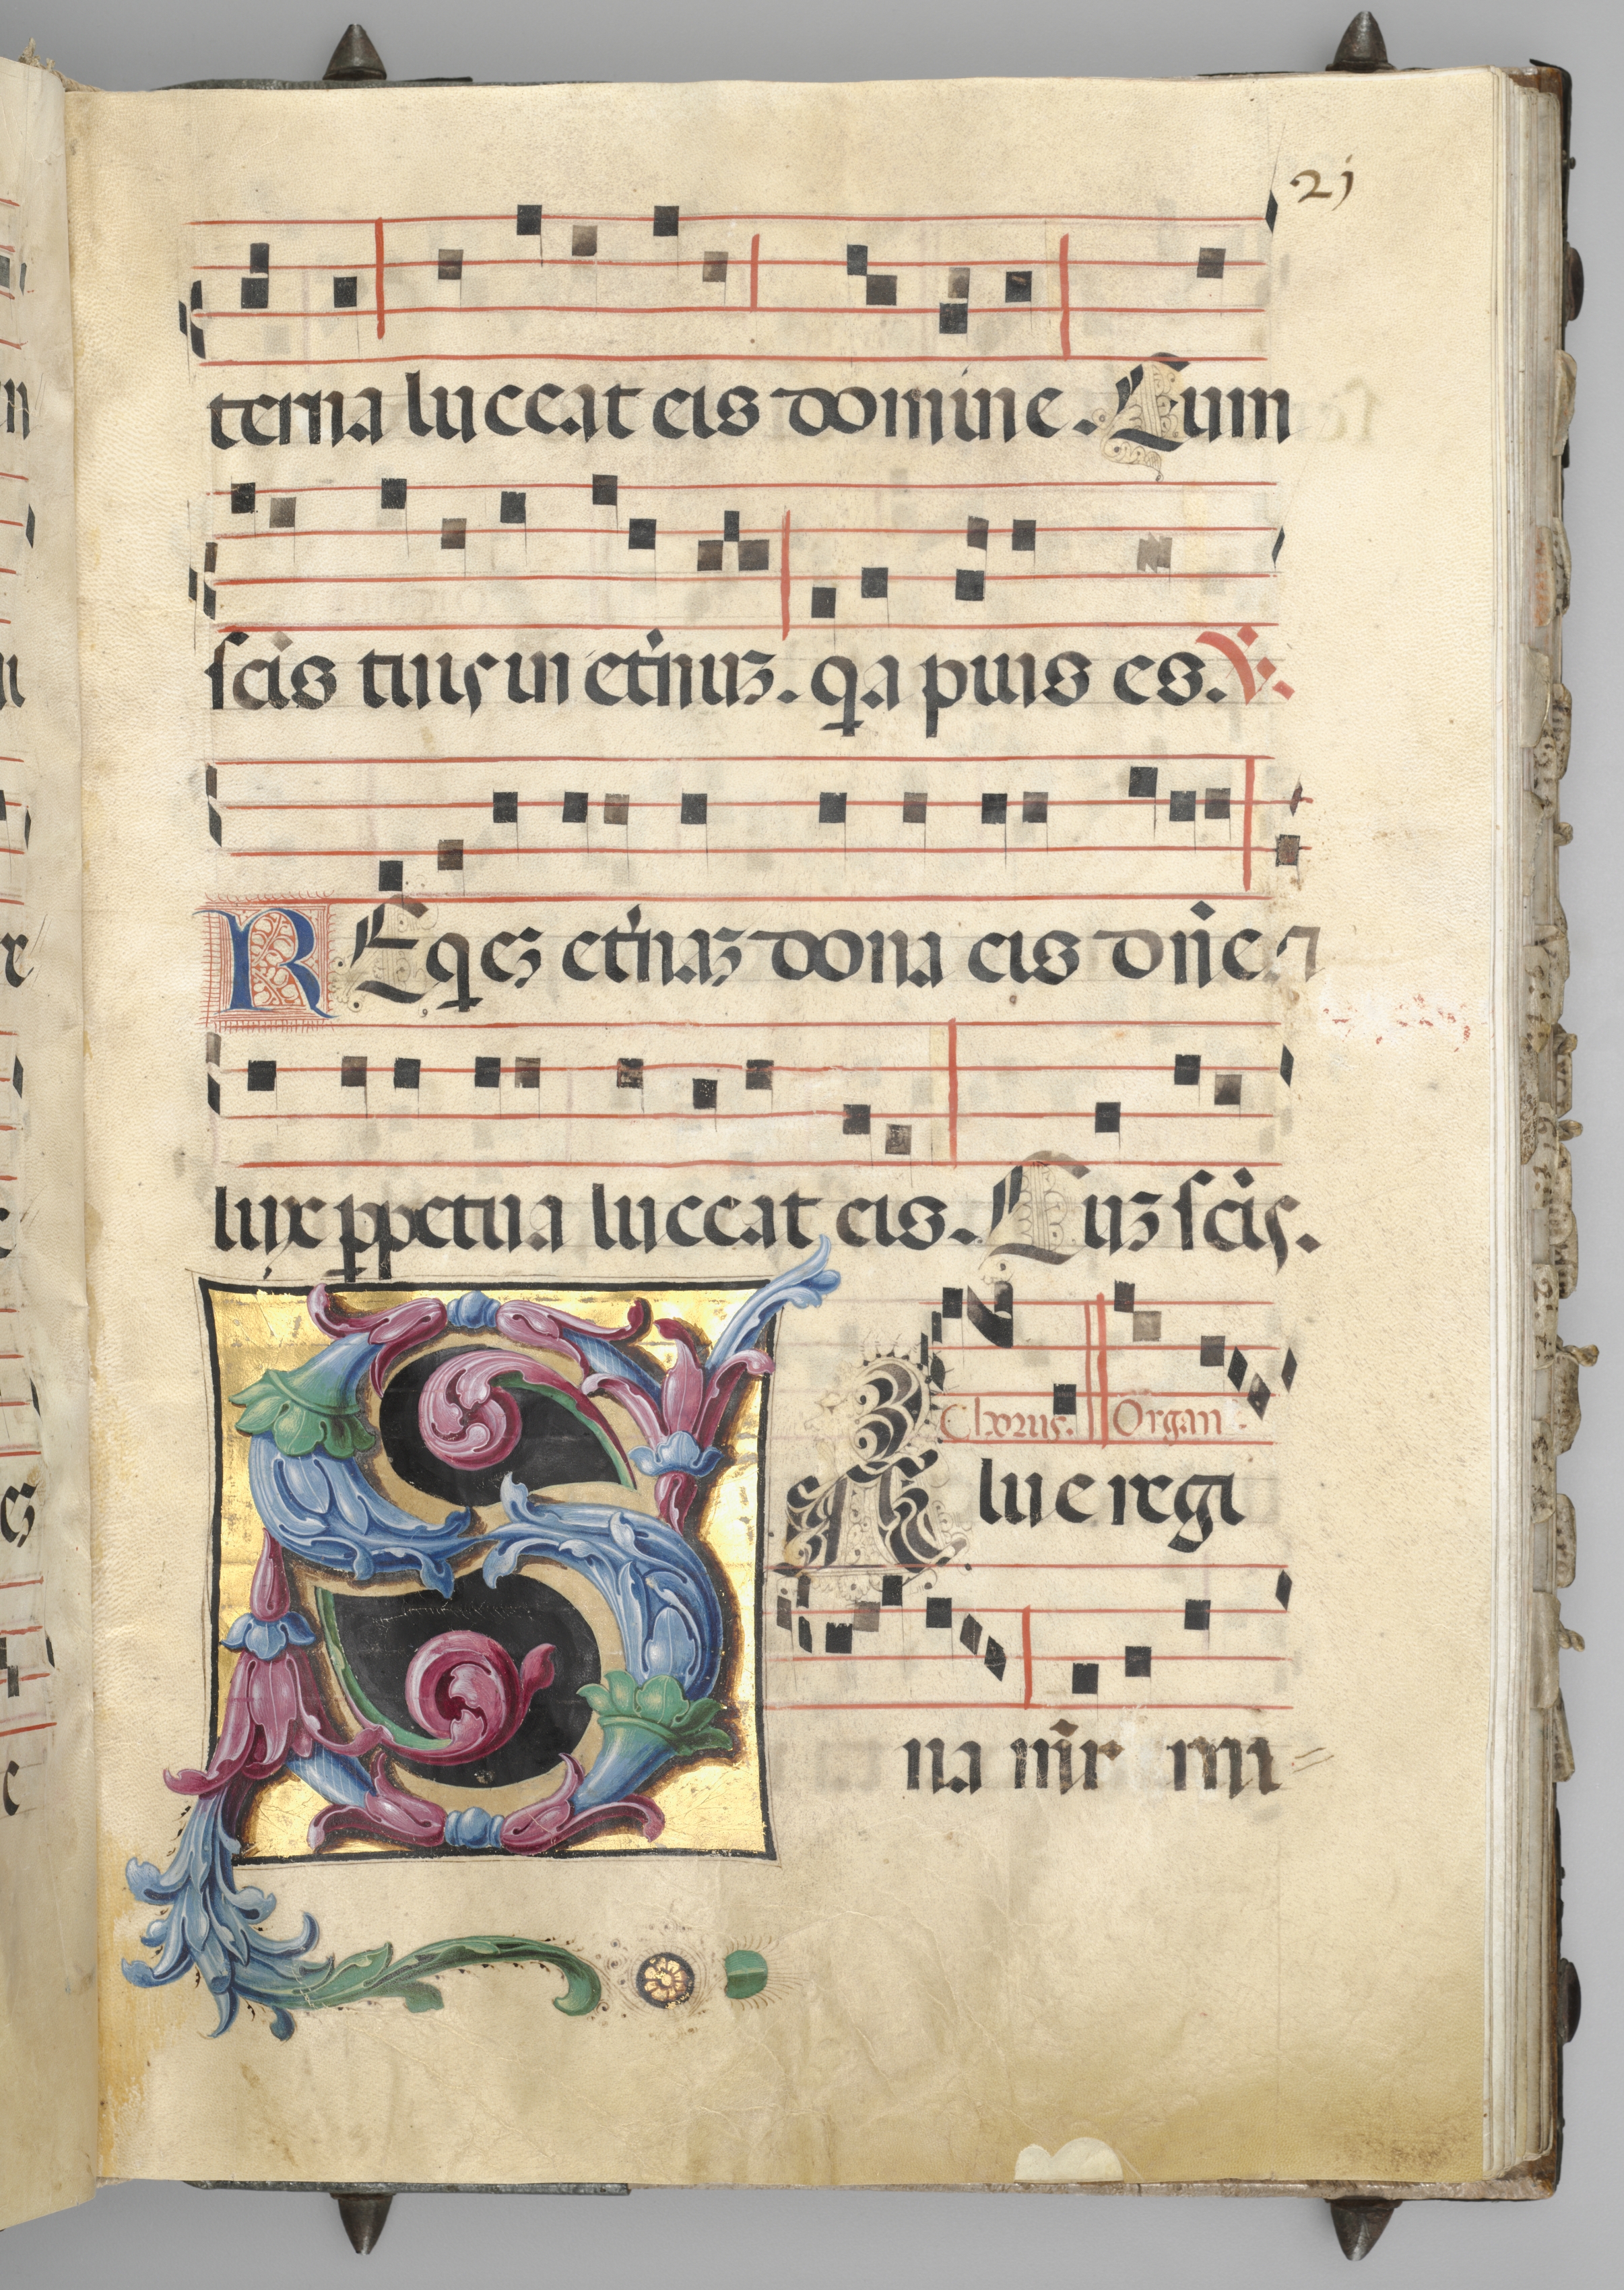 21
terna luceat eis domine. Cum
scis tuis in etnuz. qa pius es. V.
REqez etnaz dona eis dne. 7
lux ppetua luceat eis. Cuz scis.
Chorus. Organ.
SALue regi
na mir mi